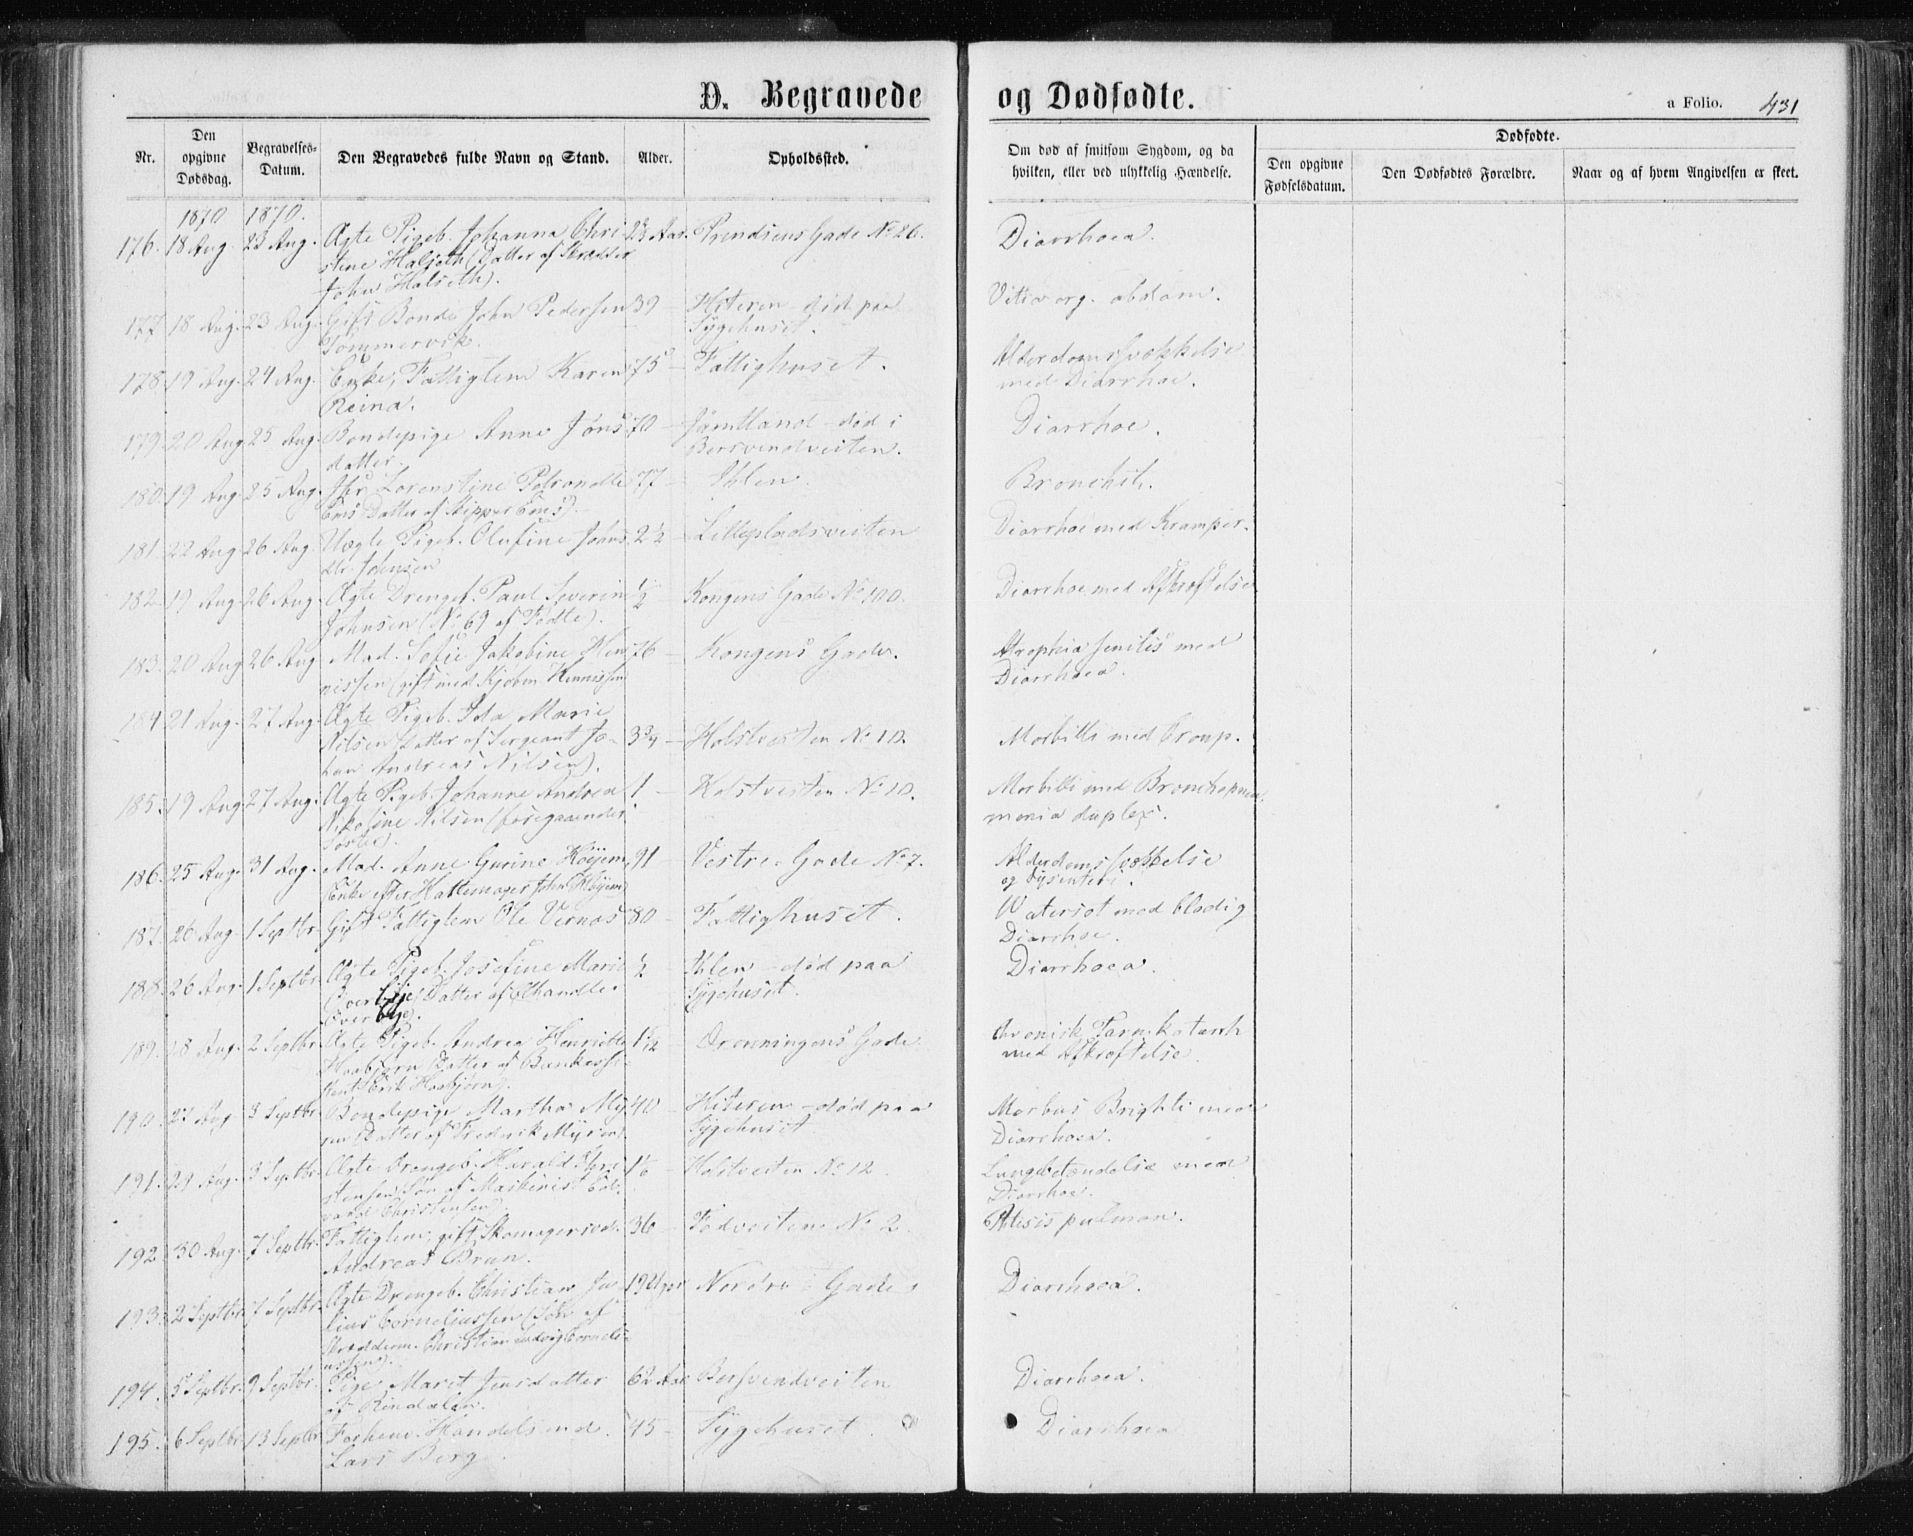 D. Begravede og Dødfødte.
a Folio. 431
Nr.
Den opgivne Dødsdag.
Begravelses-Datum.
Den Begravedes fulde Navn og Stand.
Alder.
Opholdssted.
Om død af smitsom Sygdom, og da hvilken, eller ved ulykkelig Hændelse.
Dødfødte.
Den opgivne Fødselsdatum.
Den Dødfødtes Forældre.
Naar og af hvem Angivelsen er skeet.
1870 1870.
176. 18 Aug. 23 Aug. Ægte Pigeb. Johanna Chri- Prindsens Gade No 26. Diarrhoea.
stine Halseth (Datter af Skrædder
John Halseth).
177. 18 Aug. 23 Aug. Gift Bonde John Pedersen 39 — Hiteren — død paa Vitia org. abdom.
Tømmervik. Sygehuset.
178. 19 Aug. 24 Aug. Enke, Fattiglem Karen 75 — Fattighuset. Alderdomssvækkelse
Reina. med Diarrhoe.
179. 20 Aug. 25 Aug. Bondepige Anne Jøns 70 — Jämtland — død i Diarrhoe.
datter Bersvendveiten.
180. 19 Aug. 25 Aug. Jfr. Lorenstine Petronelle 77 — Ihlen. Bronchit.
Ems (Datter af Skipper Ems).
181. 22 Aug. 26 Aug. Uægte Pigeb. Olufine Johns 2½ — Lillepladsveiten Diarrhoe med Kramper.
dtr. Johnsen
182. 19 Aug. 26 Aug. Ægte Drengeb. Paul Severin ½ — Kongens Gade No 100. Diarrhoe med Afkræftelse
Johnsen (No 69 af Fødte).
183. 20 Aug. 26 Aug. Mad. Sofie Jakobine Hen 76 — Kongens Gade. Atrophia senilis med
nissen (gift med Kjøbm. Hennissen) Diarrhoea.
184. 21 Aug. 27 Aug. Ægte Pigeb. Ida Marie
Nilsen (Datter af Sergeant Jo- 3¾ — Holstveiten No 10. Morbilli med Croup.
han Andreas Nilsen).
185. 19 Aug. 27 Aug. Ægte Pigeb. Johanne Andrea 1 — Holstveiten No 10. Morbilli med Bronchopneu-
Nikoline Nilsen (foregaaendes monia duplex.
Søster).
186. 25 Aug. 31 Aug. Mad. Anne Gurine Høyem, 91 — Vestre Gade No 7. Alderdomssvækkelse
Enke efter Hattemager John Høyem og Dysenteri.
187. 26 Aug. 1 Septbr. Gift Fattiglem Ole Vernæs 80 — Fattighuset. Watersot med blodig
Diarrhoe.
188. 26 Aug. 1 Septbr. Ægte Pigeb. Josefine Marie ½ — Ihlen — død paa Diarrhoea.
Overbye (Datter af Ehandler Sygehuset.
Overbye).
189. 28 Aug. 2 Septbr. Ægte Pigeb. Andrea Henriette 1 1/12 — Dronningens Gade Chronisk Tarmkatarrh
Haabjørn (Datter af Bankassi- med Afkræftelse.
stent Erik Haabjørn).
190. 27 Aug. 3 Septbr. Bondepige Martha My 40 — Hiteren — død paa Morbus Brightii med
ren (Datter af Frederik Myren). Sygehuset. Diarrhoea.
191. 29 Aug. 3 Septbr. Ægte Drengeb. Harald Chri — Holstveiten No 12. Lungebetændelse med
stensen (Søn af Maskinist Ed- Diarrhoe.
vard Christensen).
192. 30 Aug. 7 Septbr. Fattiglem, gift Skomagersvd. 36 — Fødveiten No 2. Ptisis pulmon.
Andreas Brun.
193. 2 Septbr. 7 Septbr. Ægte Drengeb. Christian Ju 19 Uger Nordre Gade Diarrhoea.
lius Corneliussen (Søn af
Skrædderm. Christian Ludvig Corneli-
ussen).
194. 5 Septbr. 9 Septbr. Pige Marit Jensdatter 62 Aar Bersvendveiten Diarrhoea.
af Rindalen.
195. 6 Septbr. 13 Septbr. Forhenv. Handelsmd. 45 — Sygehuset. Diarrhoea
Lars Berg.